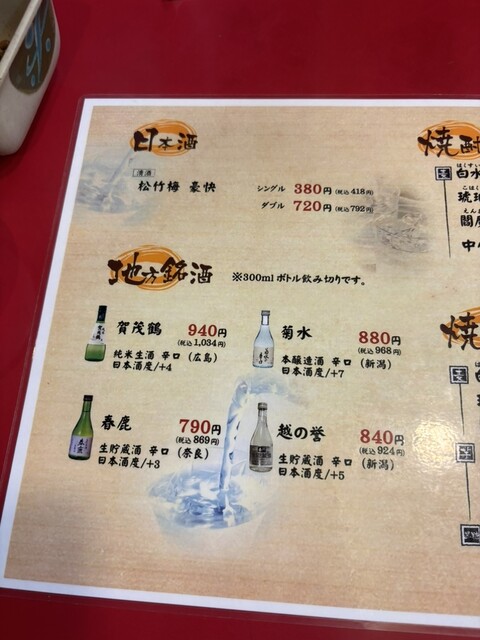 日本酒
清酒
松竹梅 豪快
シングル 380円(税込418円)
ダブル 720円(税込792円)
地方銘酒 ※300mlボトル飲み切りです。
賀茂鶴 940円
(税込1,034円)
純米生酒 辛口 (広島)
日本酒度/+4
菊水 880円
(税込968円)
本醸造酒 辛口 (新潟)
日本酒度/+7
春鹿 790円
(税込869円)
生貯蔵酒 辛口 (奈良)
日本酒度/+3
越の誉 840円
(税込924円)
生貯蔵酒 辛口 (新潟)
日本酒度/+5
焼酎
白水
焼